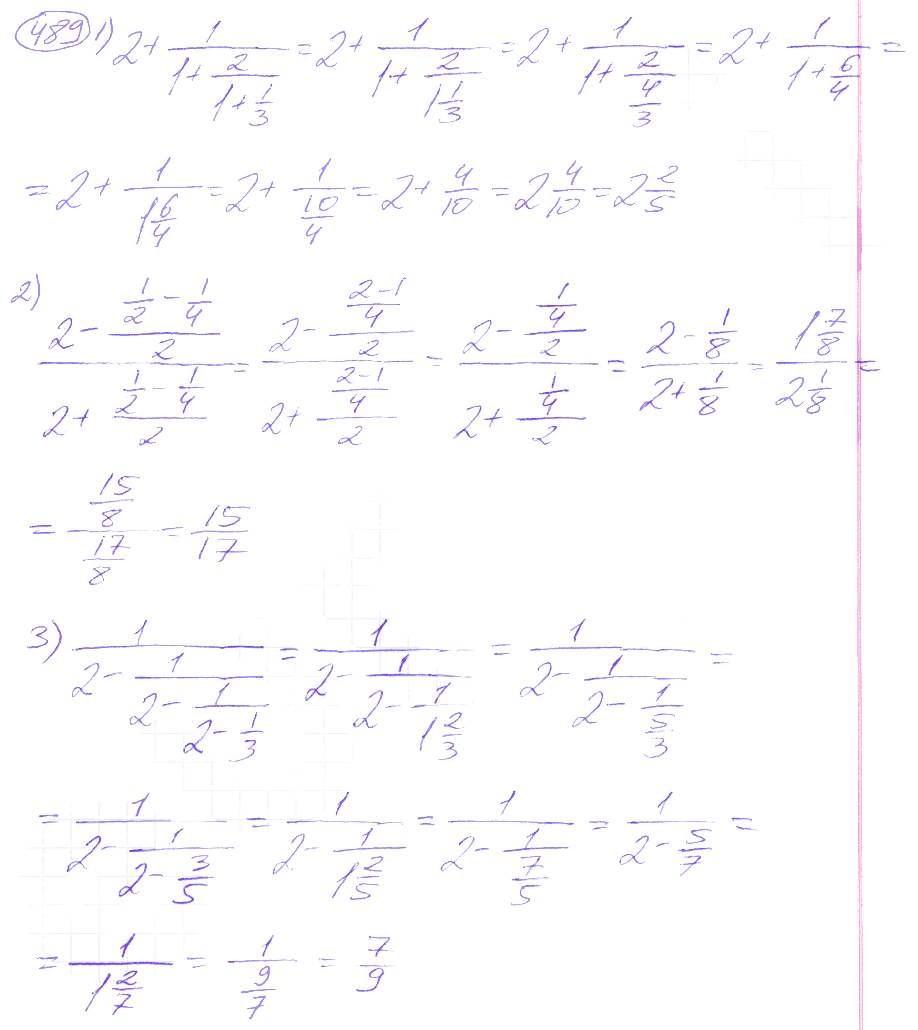 489 1) 2 + 1/(1 + 2/(1 + 1/3)) = 2 + 1/(1 + 2/(1 1/3)) = 2 + 1/(1 + 2/(4/3)) = 2 + 1/(1 + 6/4) =
= 2 + 1/(1 6/4) = 2 + 1/(10/4) = 2 + 4/10 = 2 4/10 = 2 2/5
2) (2 - (1/2 - 1/4)/2)/(2 + (1/2 - 1/4)/2) = (2 - ((2-1)/4)/2)/(2 + ((2-1)/4)/2) = (2 - (1/4)/2)/(2 + (1/4)/2) = (2 - 1/8)/(2 + 1/8) = (1 7/8)/(2 1/8) =
= (15/8)/(17/8) = 15/17
3) 1/(2 - 1/(2 - 1/(2 - 1/3))) = 1/(2 - 1/(2 - 1/(1 2/3))) = 1/(2 - 1/(2 - 1/(5/3))) =
= 1/(2 - 1/(2 - 3/5)) = 1/(2 - 1/(1 2/5)) = 1/(2 - 1/(7/5)) = 1/(2 - 5/7) =
= 1/(1 2/7) = 1/(9/7) = 7/9